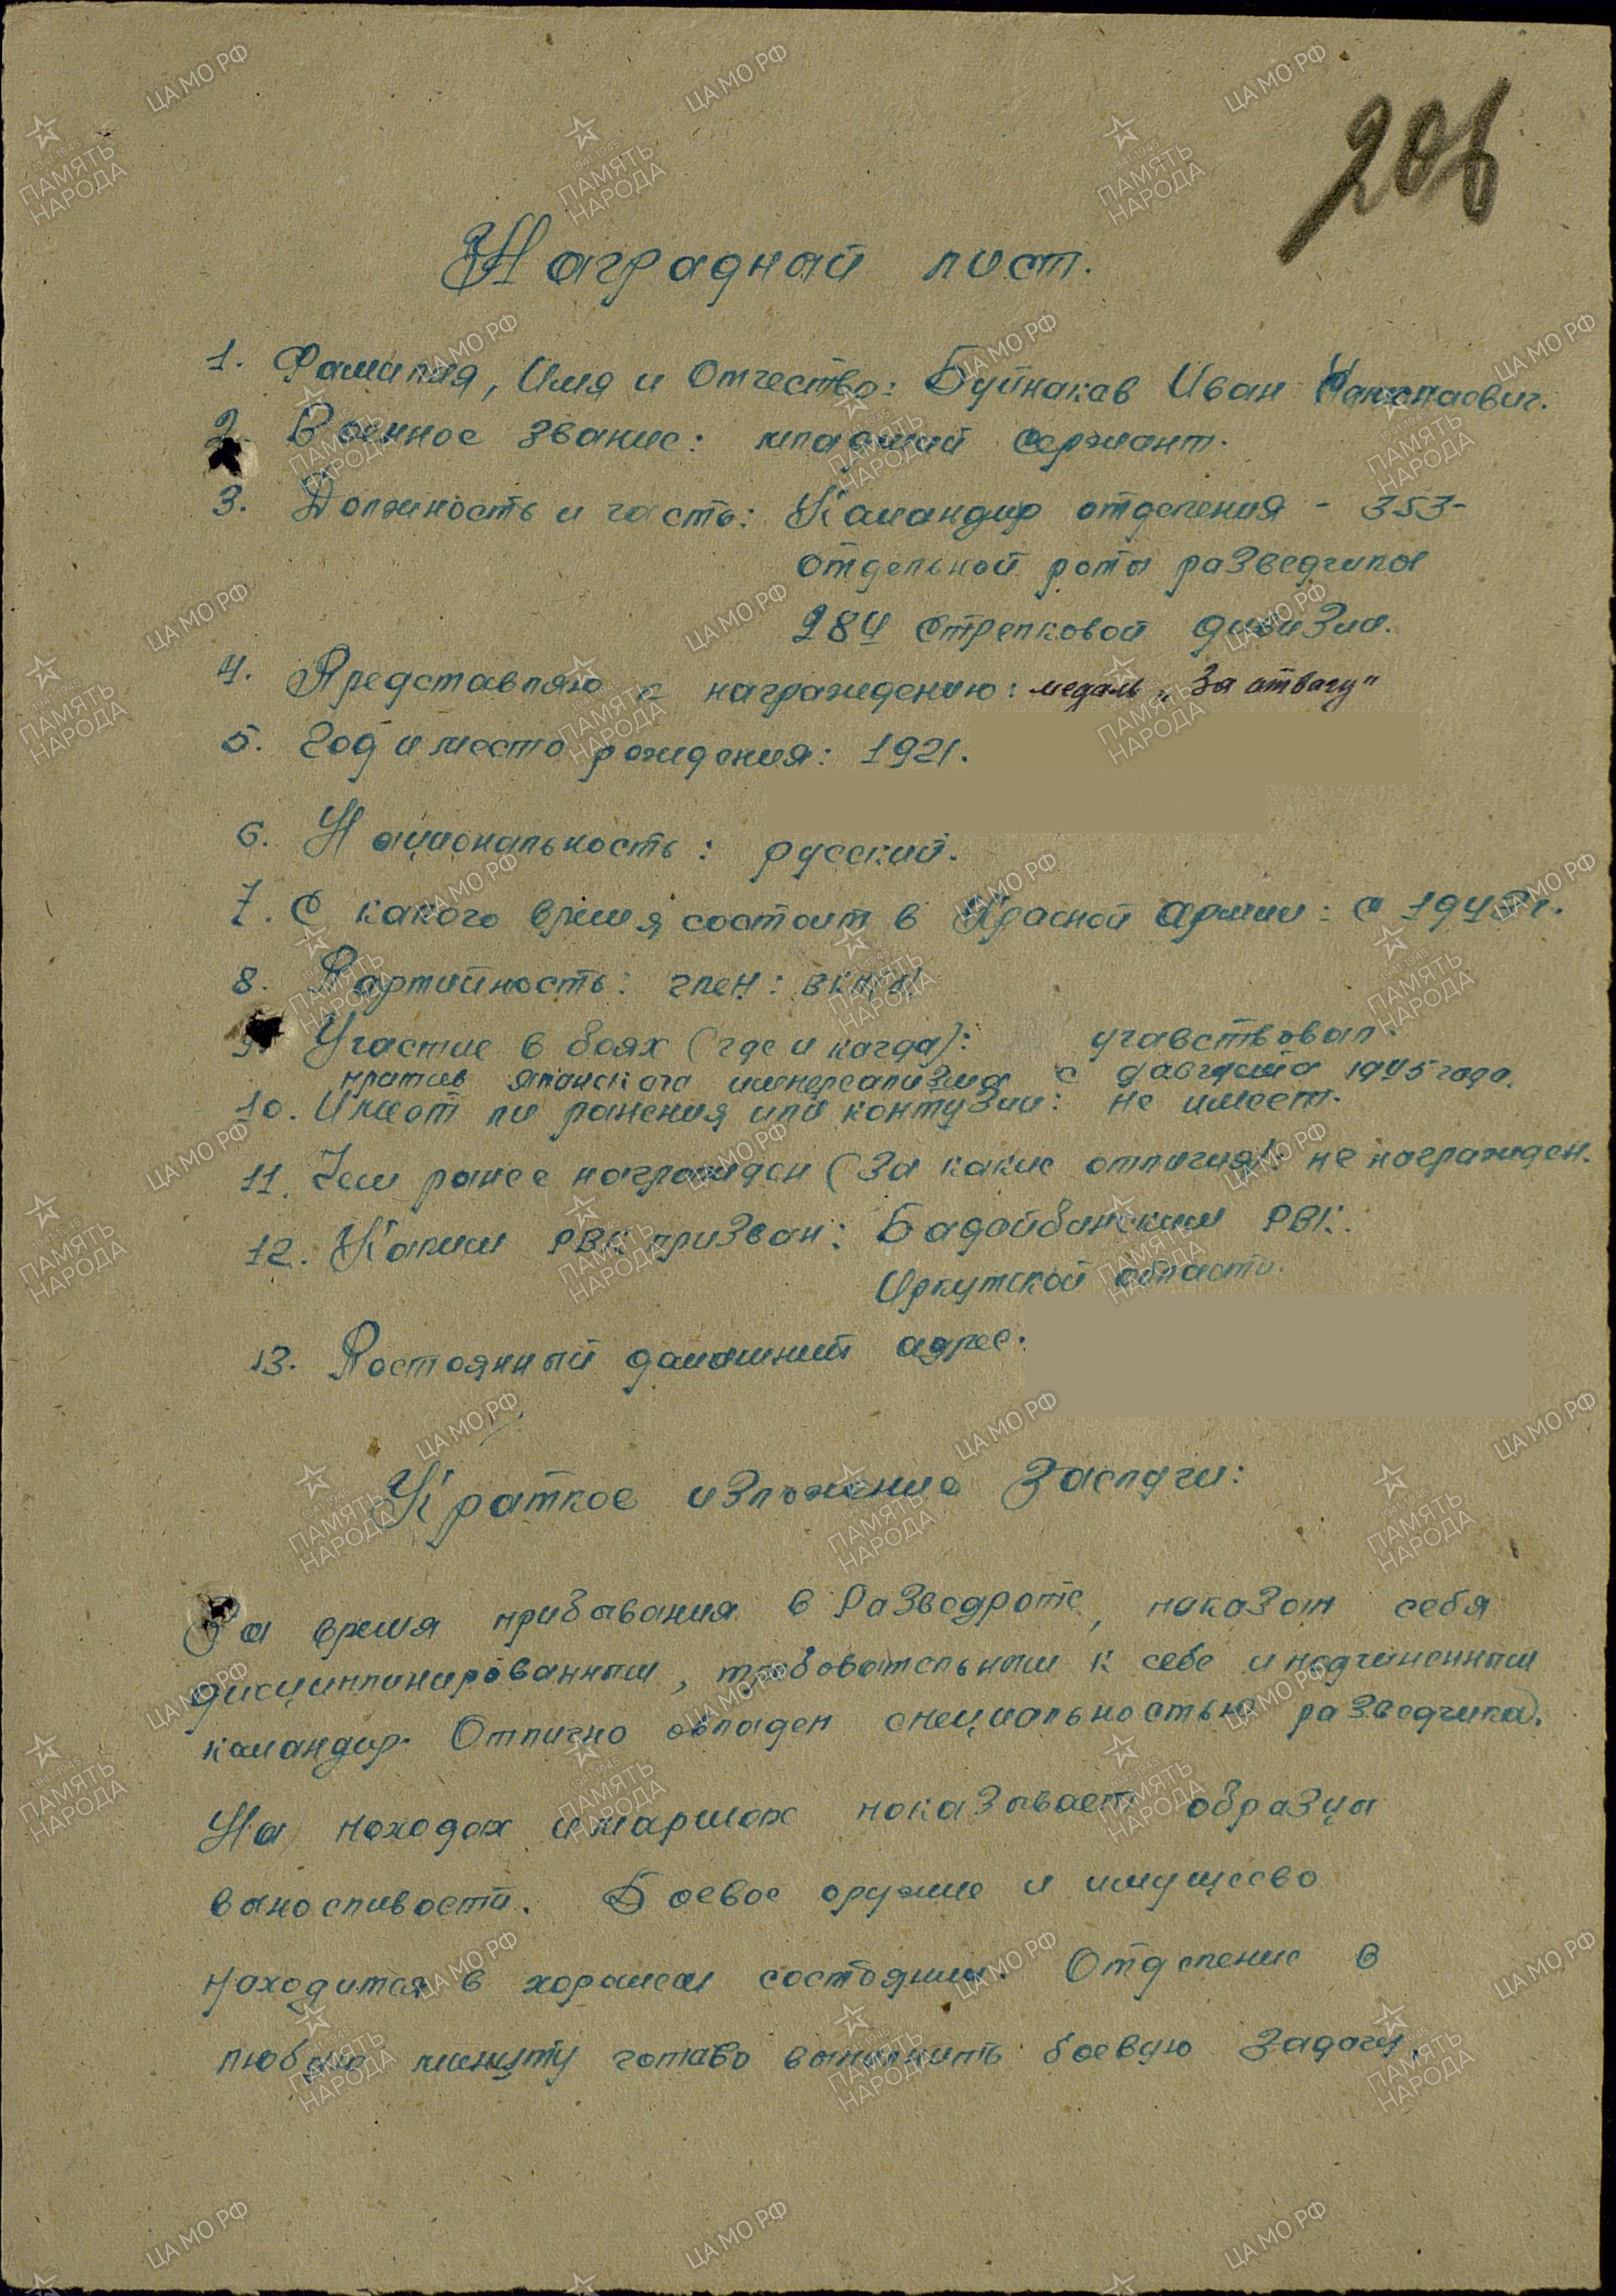 206
Наградной лист.
1. Фамилия, Имя и Отчество: Буйнакав Иван
2. Военное звание: младший сержант.
3. Должность и часть: Камандир отделения - 353-
отдельной роты разведчика
284 стрелковой дивизии.
4. Представляю к награждению: медаль „За отвагу"
5. Год и место рождения: 1921.
6. Национальность: русский.
7. С какого время состоит в Красной армии: с
8. Партийность: член:
9. Участие в боях (где и кагда): учавствовал.
против японского с 9 августа 1945 года.
10. Имеет ли ранения или контузии: не имеет.
11. Чем ранее награжден (За какие отличия): не награжден.
12. Каким РВК призван: Бадайбинским РВК.
Иркутской области.
13. Постоянный дамашний адрес:
Краткое изложение Заслуги:
За время прибывания в Разведроте, показал себя
дисциплинированным, требовательным к себе и подчиненным
камандир. Отлично овладел специальностью разведчика.
На походах и маршах показывает образцы
выносливости. Боевое оружие и имущесво
находится в харошем состоянии. Отделение в
любую минуту готово выполнить боевую задачу.
ЦА МО РФ
1941-1945
ПАМЯТЬ
НАРОДА